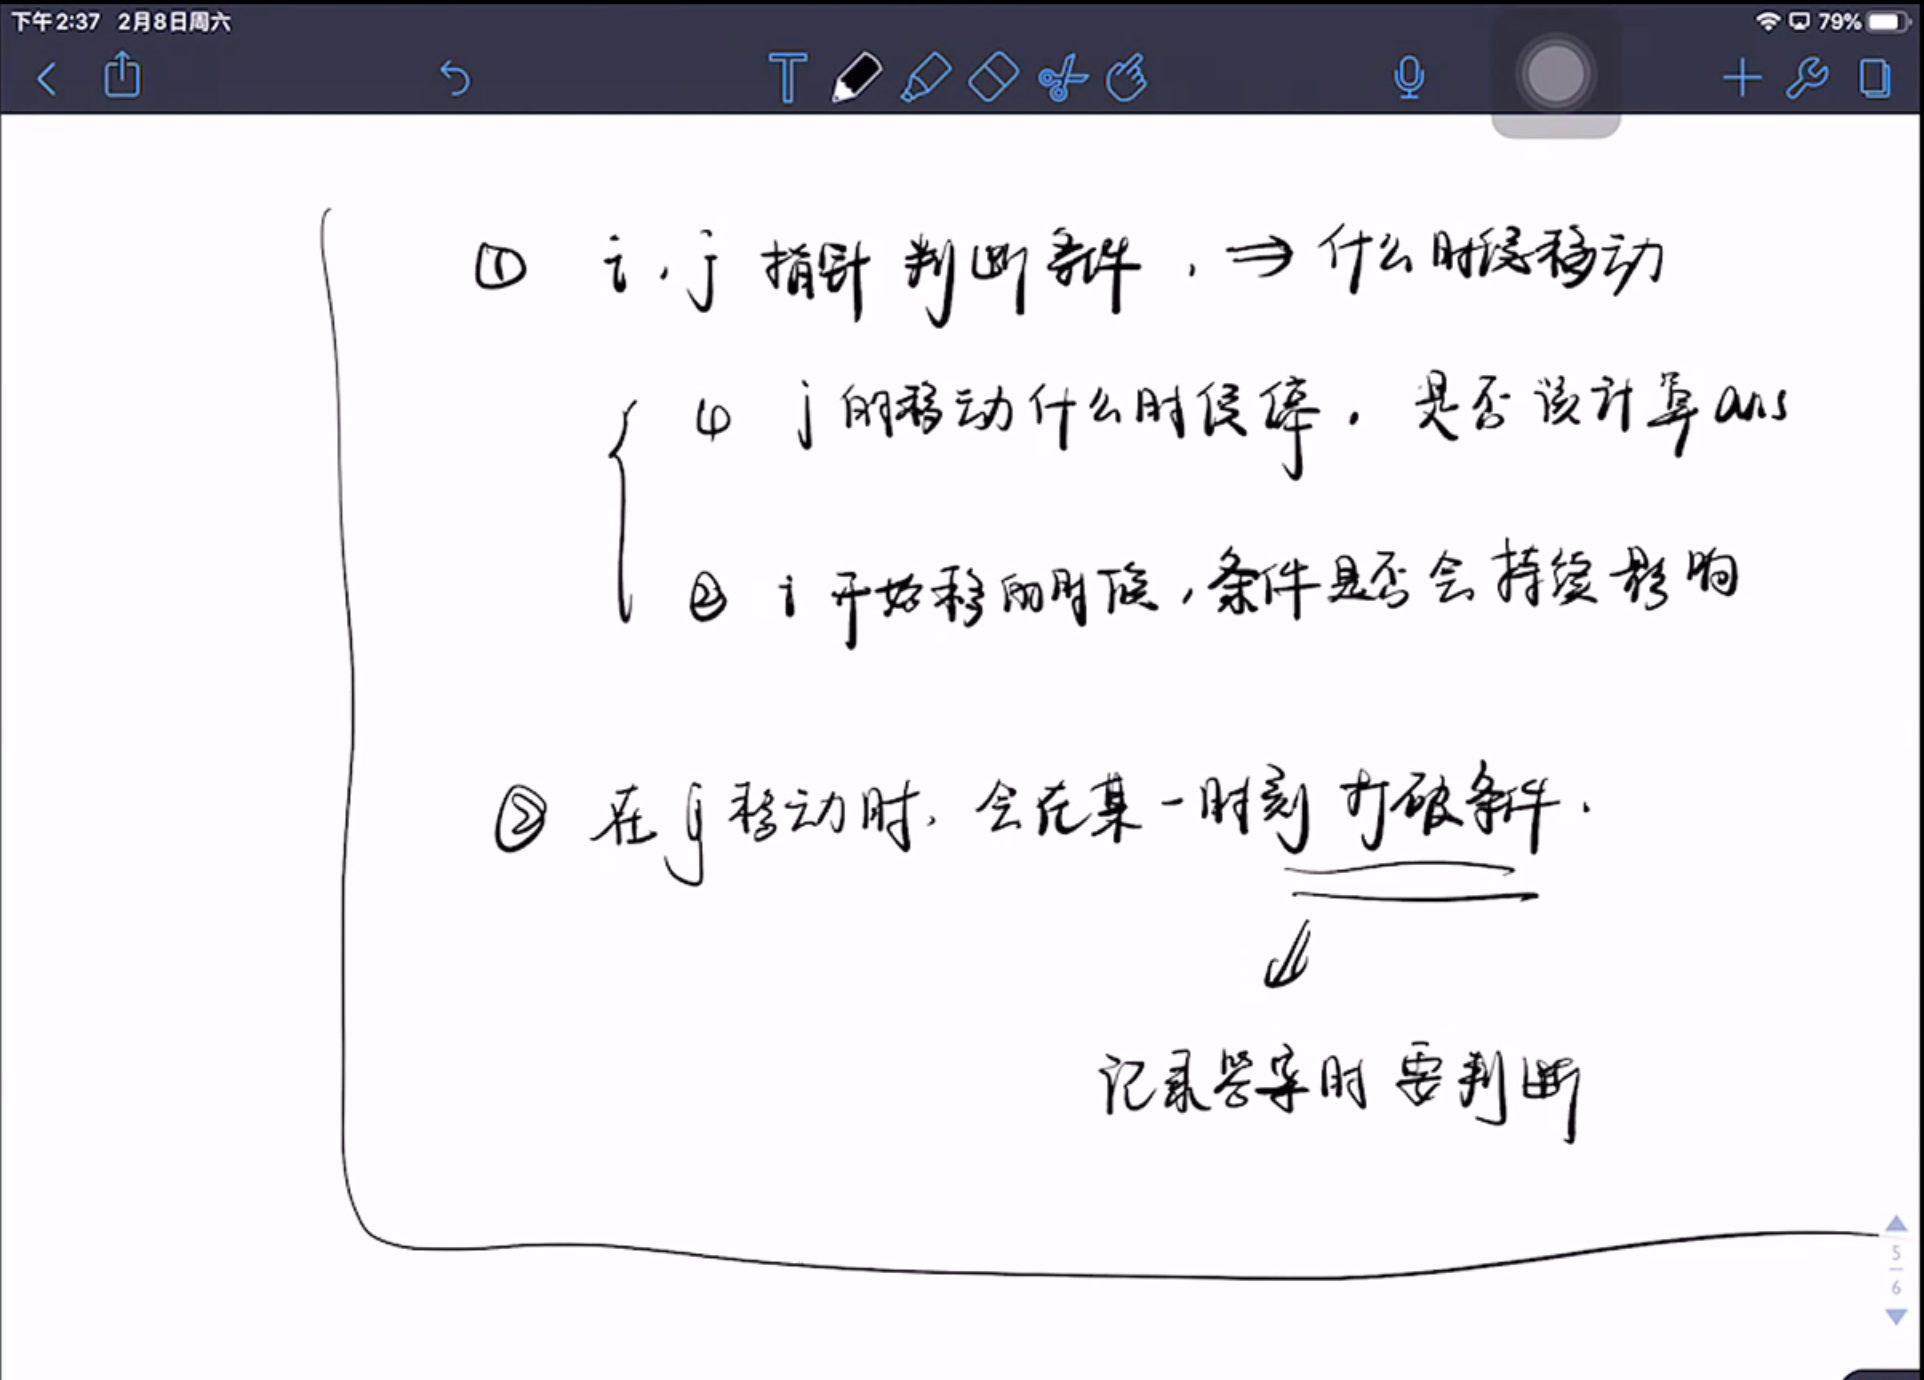 下午2:37 2月8日周六 79%
① i,j 指针判断条件, ⇒ 什么时候移动
① j的移动什么时候停. 是否该计算ans
② i 开始移的时候,条件是否会持续影响
② 在j移动时,会在某一时刻打破条件.
记录答案时要判断
5
6